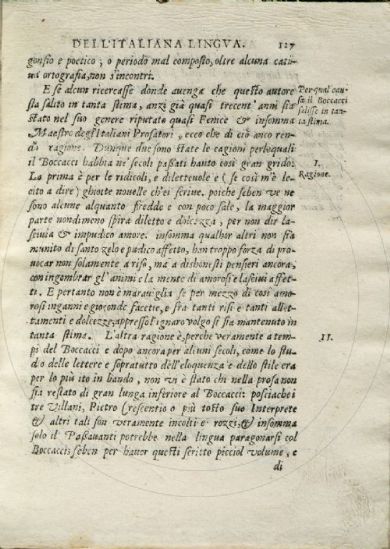 DELL'ITALIANA LINGVA. 127
gonfio e poetico; o periodo mal composto, oltre alcuna catti-
ua ortografia, non s'incontri.
E se alcun ricercasse donde auenga che questo autore
sia salito in tanta stima, anzi già quasi trecent' anni sia
stato nel suo genere riputato quasi Fenice & insomma
Maestro degl'Italiani Prosatori, ecco che di ciò anco ren-
dò ragione. Dunque due son state le cagioni per le quali
il Boccacci habbia ne' secoli passati hauto così gran grido:
La prima è per le ridicoli, e diletteuole e (se così m'è le-
cito a dire) ghiotte nouelle ch'ei scriue. poiche seben ve ne
sono alcune alquanto fredde e con poco sale, la maggior
parte nondimeno spira diletto e dolcezza, per non dir la-
sciuia & impudico amore. insomma qualhor altri non sia
munito di santo zelo e pudico affetto, han troppo forza di pro-
uocar non solamente a riso, ma a dishonesti pensieri ancora,
con ingombrar gl'animi e la mente di amorosi e lasciui affet-
ti. E pertanto non è marauiglia se per mezzo di così amo-
rosi inganni e gioconde facetie, e sra tanti risi e tanti allet-
tamenti e dolcezze, appresso l'ignaro volgo si sia mantenuto in
tanta stima. L'altra ragione è, perche veramente a tem-
pi del Boccacci e dopo ancora per alcuni secoli, come lo stu-
dio delle lettere e sopratutto dell'eloquenza e dello stile era
per lo più ito in bando, non vi è stato chi nella prosa non
sia restato di gran lunga inferiore al Boccacci: posciache i
tre Villani, Pietro Crescentio o più tosto suo Interprete
& altri tali son veramente incolti e rozzi, & insomma
solo il Passauanti potrebbe nella lingua paragonarsi col
Boccacci, seben per hauer questi scritto picciol volume, e
di
Per qual cau-
sa il Boccacci
salisse in tan-
ta stima.
I.
Ragione.
II.